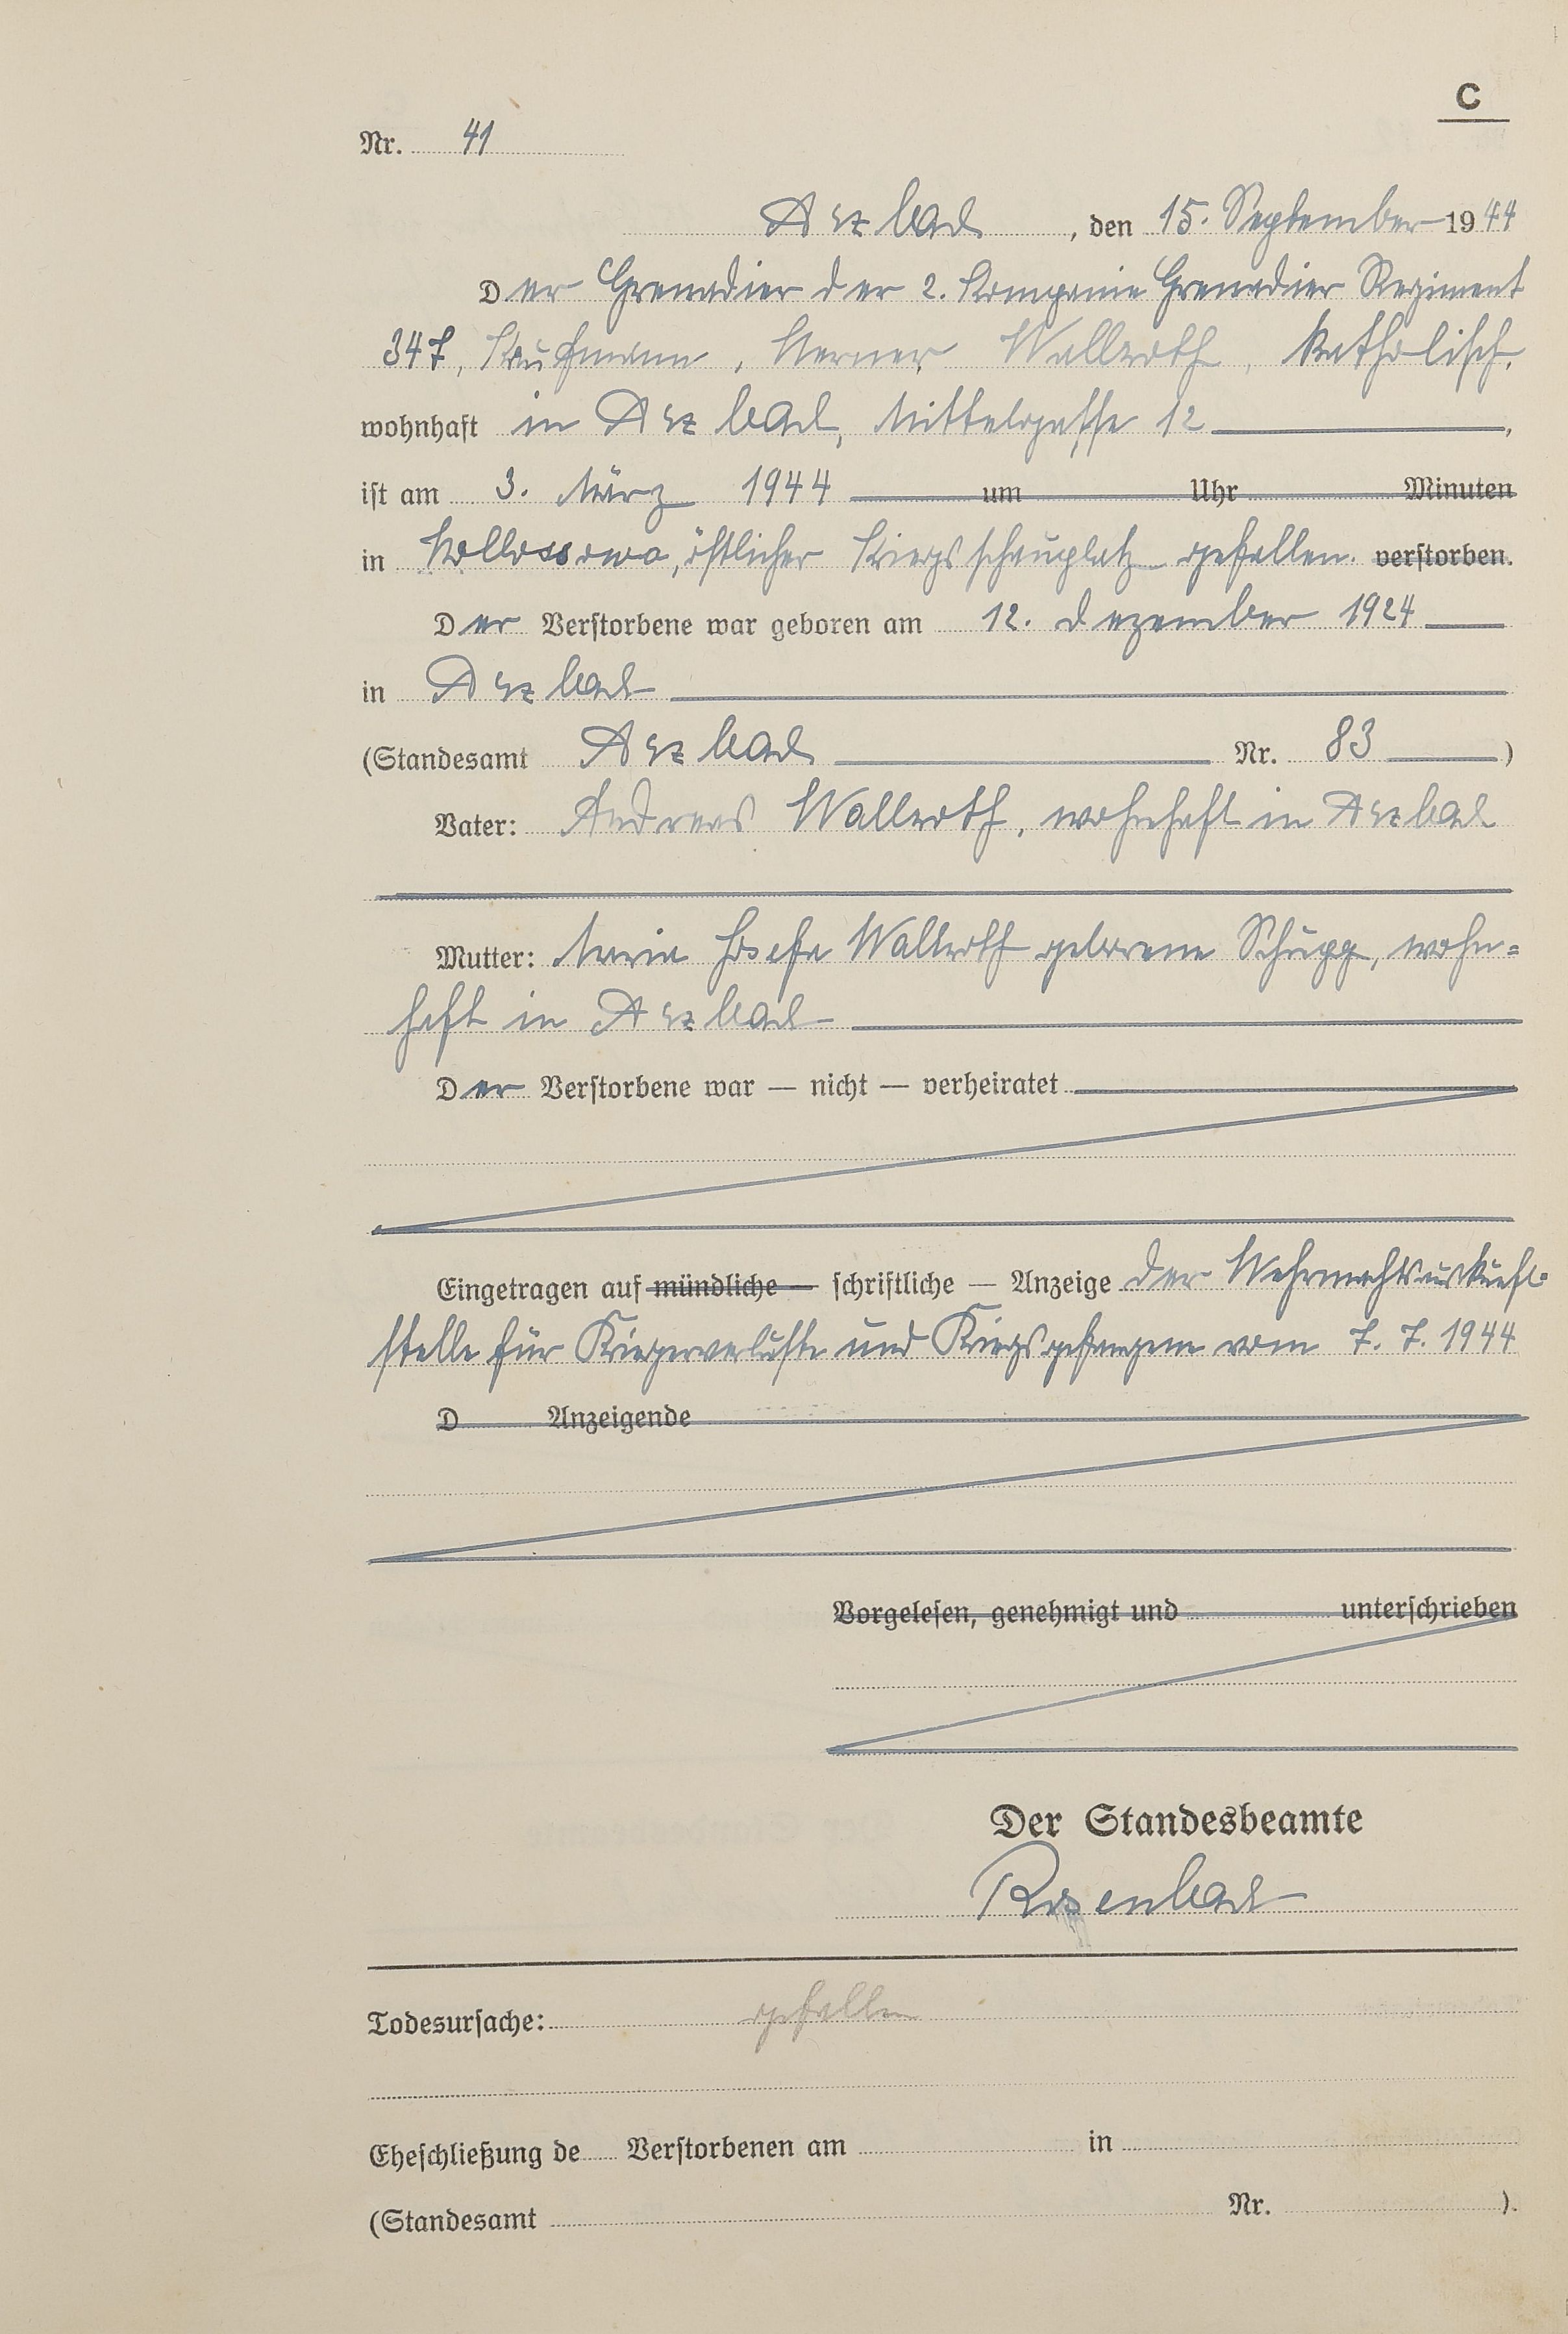 C
Nr. 41
Arzbach, den 15. September 1944
Der Grenadier der 2. Kompanie Grenadier Regiment
347, Kaufmann, Werner Wallroth, katholisch,
wohnhaft in Arzbach, Mittelgasse 12,
ist am 3. März 1944 um Uhr Minuten
in östlicher Kriegsschauplatz gefallen. verstorben.
Der Verstorbene war geboren am 12. Dezember 1924
in Arzbach
(Standesamt Arzbach Nr. 83)
Vater: Andreas Wallroth, wohnhaft in Arzbach
Mutter: Maria Josefa Wallroth geborene Schupp, wohn=
haft in Arzbach
Der Verstorbene war — nicht — verheiratet
Eingetragen auf mündliche — schriftliche — Anzeige der Wehrmachtsauskunft=
stelle für Kriegerverluste und Kriegsgefangene vom 7. 7. 1944
D Anzeigende
Vorgelesen, genehmigt und unterschrieben
Der Standesbeamte
Rosenbach
Todesursache: gefallen
Eheschließung de Verstorbenen am in
(Standesamt Nr. ).